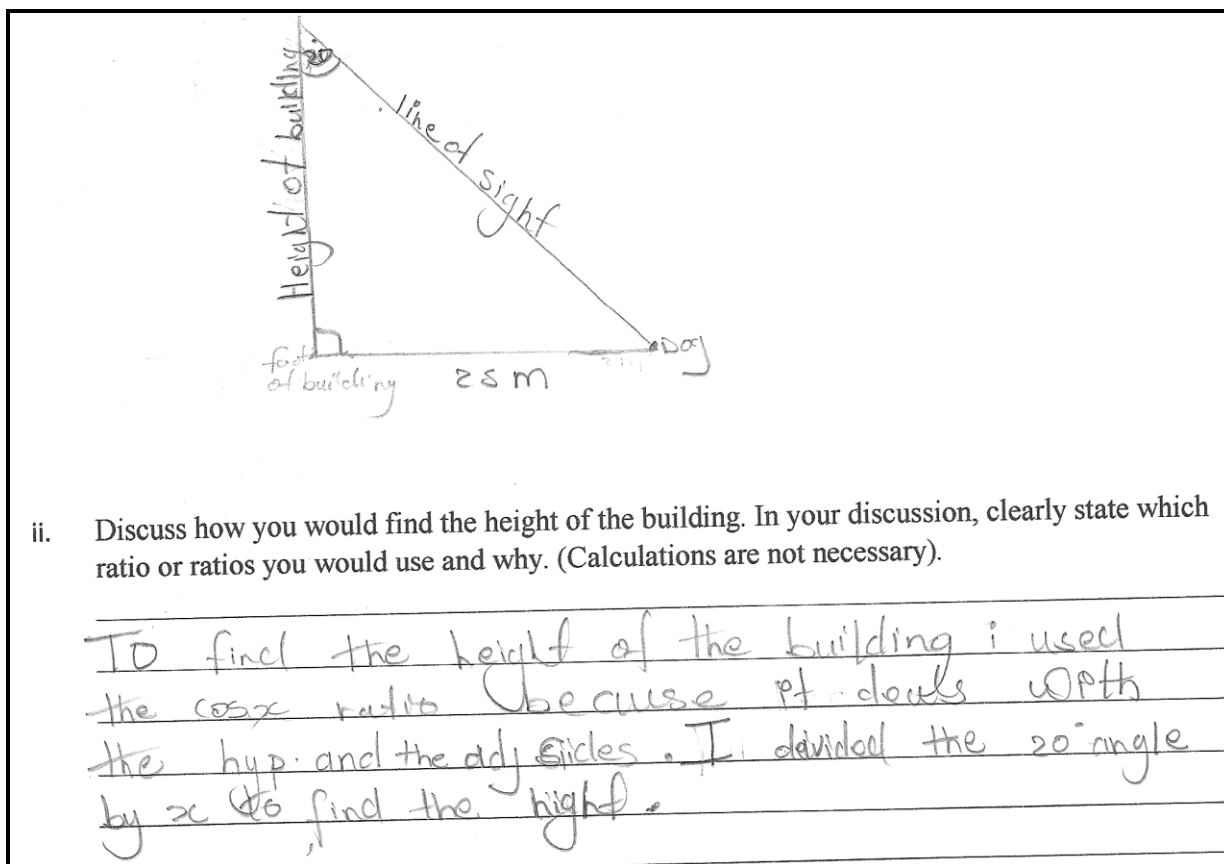 Height of building
20
line of sight
Dog
foot
of building
25 m
ii. Discuss how you would find the height of the building. In your discussion, clearly state which
ratio or ratios you would use and why. (Calculations are not necessary).
To find the height of the building i used
the cosx ratio because it deals with
the hyp. and the adj sides. I devided the 20° angle
by x to find the hight.